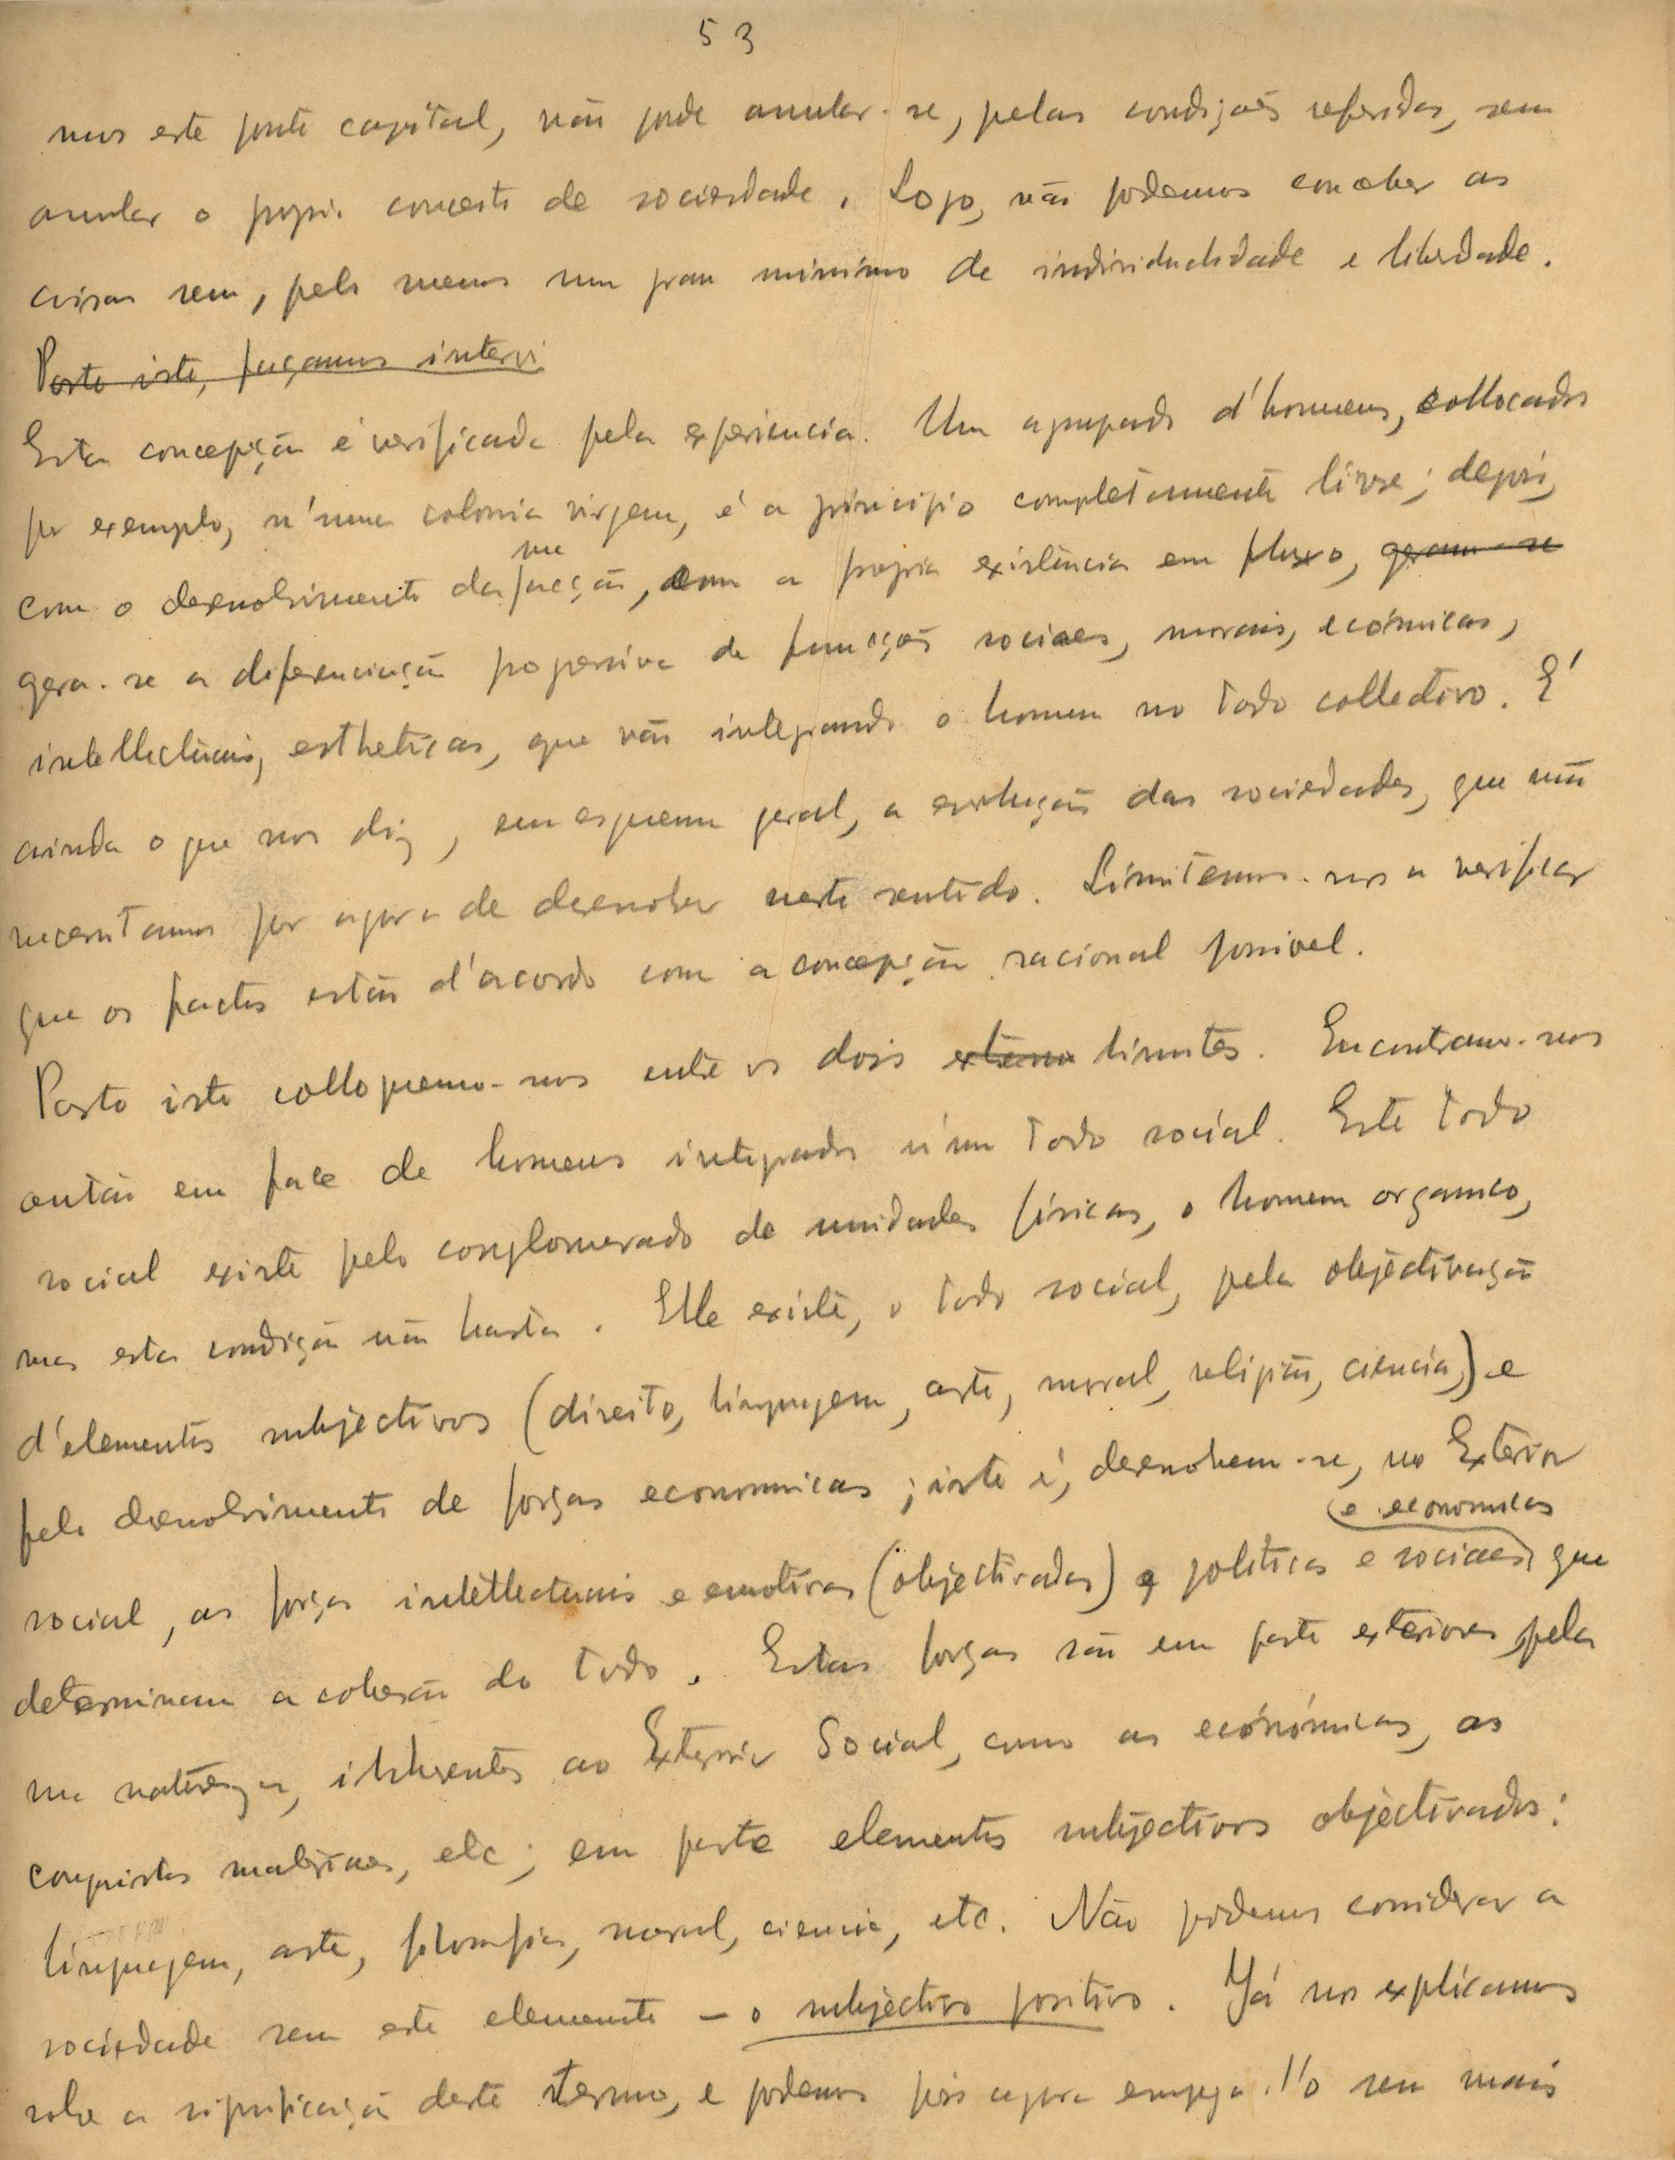 53
mos este ponto capital, não pode anular-se, pelas condições referidas, sem
anular o proprio conceito de sociedade. Logo, não podemos conceber as
coisas sem, pelo menos um grau minimo de individualidade e liberdade.
Posto isto, façamos intervi
Esta concepção é verificada pela experiencia. Um agrupado d'homens, collocados
por exemplo, n'uma colonia virgem, é a principio completamente livre; depois,
com o desenvolvimento da sua acção, com a propria existência em fluxo, geram-se
gera-se a diferenciação progressiva de funcções sociaes, morais, ecómicas,
intellectuais, estheticas, que vão integrando o homem no todo collectivo. É
ainda o que nos diz, em esquema geral, a evolução das sociedades, que não
necessitamos por agora de desenvolver neste sentido. Limitamo-nos a verificar
que os factos estão d'acordo com a concepção racional possivel.
Posto isto colloquemo-nos entre os dois extremo limites. Encontramo-nos
então em face de homens integrados n'um todo social. Este todo
social existe pelo conglomerado de unidades físicas, o homem organico,
mas esta condição não basta. Elle existe, o todo social, pela objectivação
d'elementos subjectivos (direito, linguagem, arte, moral, religião, ciencia,) e
pelo desenvolvimento de forças economicas; isto é, desenvolvem-se, no Exterior
e economicas
social, as forças intellectuais e emotivas (objectivadas) e politicas e sociaes, que
determinam a cohesão do todo. Estas forças são em parte exteriores, pela
sua natureza, inherentes ao Exterior Social, como as económicas, as
conquistas materiaes, etc; em parte elementos subjectivos objectivados:
linguagem, arte, filosofia, moral, ciencia, etc. Não podemos considerar a
sociedade sem este elemento - o subjectivo positivo. Já nos explicamos
sobre a significação deste termo, e podemos pois agora emprega-l'o sem mais